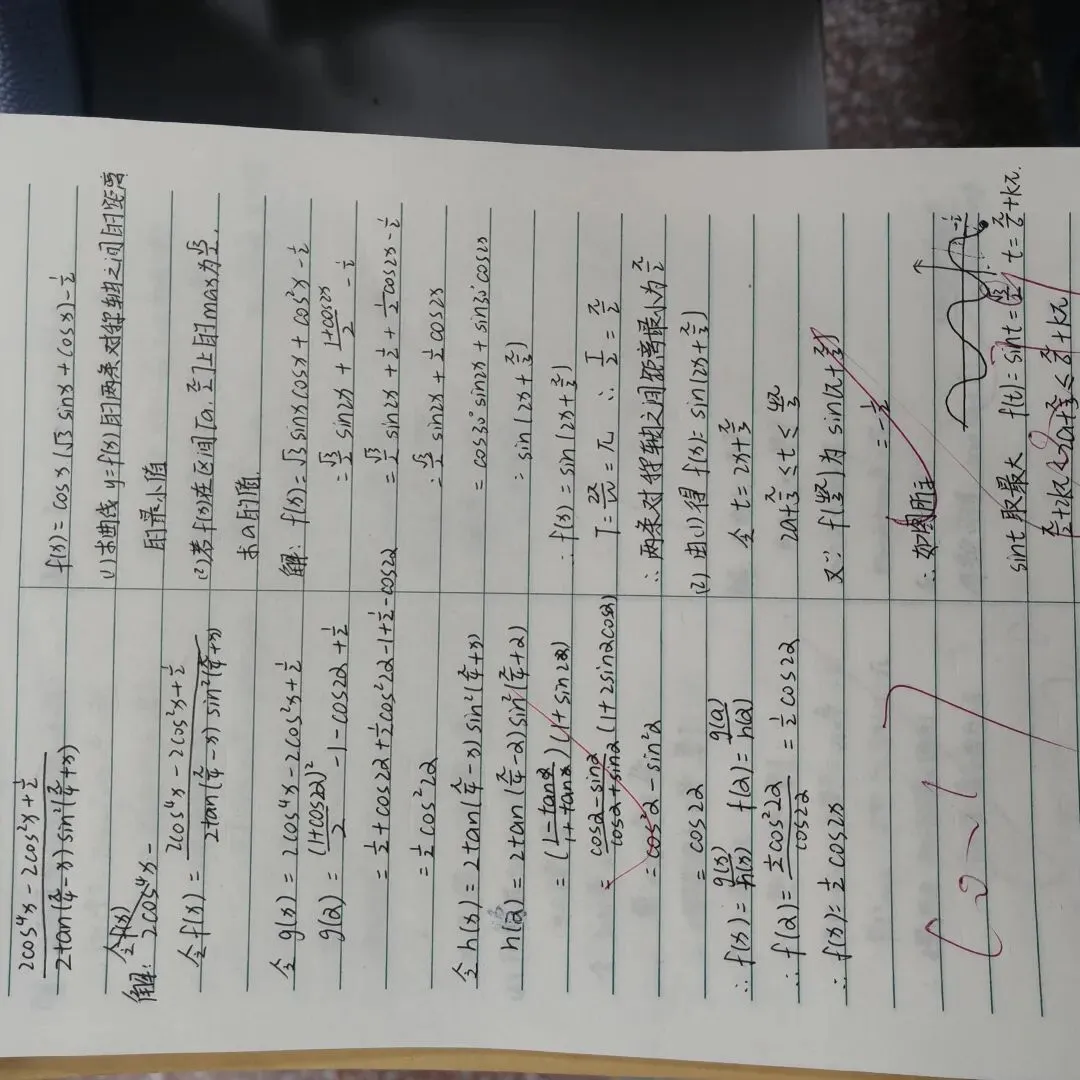 2cos⁴x-2cos²x+½
2tan(π/4-x)sin²(π/4+x)
令f(x)
解: 2cos⁴x-
令f(x)= 2cos⁴x-2cos²x+½
2tan(π/4-x)sin²(π/4+x)
令g(x)=2cos⁴x-2cos²x+½
g(2)= (1+cos22)²/2 -1-cos22+½
=½+cos22+½cos²22-1+½-cos22
=½cos²22
令h(x)=2tan(π/4-x)sin²(π/4+x)
h(2)=2tan(π/4-2)sin²(π/4+2)
=(1-tan2/1+tan2)(1+sin22)
=cos2-sin2/cos2+sin2(1+2sin2cos2)
=cos²2-sin²2
=cos22
∴f(x)=g(x)/h(x) f(2)=g(2)/h(2)
∴f(2)=½cos²22/cos22=½cos22
∴f(x)=½cos2x
f(x)=cosx(√3sinx+cosx)-½
(1)求曲线y=f(x)的两条对称轴之间的距离
的最小值
(2)若f(x)在区间[a,π/2]上的max为√3/2,
求a的值.
解: f(x)=√3sinxcosx+cos²x-½
=√3/2sin2x+1+cos2x/2-½
=√3/2sin2x+½+½cos2x-½
=√3/2sin2x+½cos2x
=cos30°sin2x+sin30°cos2x
=sin(2x+π/3)
∴f(x)=sin(2x+π/3)
T=2π/|ω|=π ∴T/2=π/2
∴两条对称轴之间距离最小为π/2
(2)由(1)得f(x)=sin(2x+π/3)
令t=2x+π/3
2a+π/3≤t≤4π/3
又∵f(4π/3)为sin(π+π/3)
=-½
∴如图所示
-½
sint取最大 f(t)=sint=(√3/2) t=π/6+kπ.